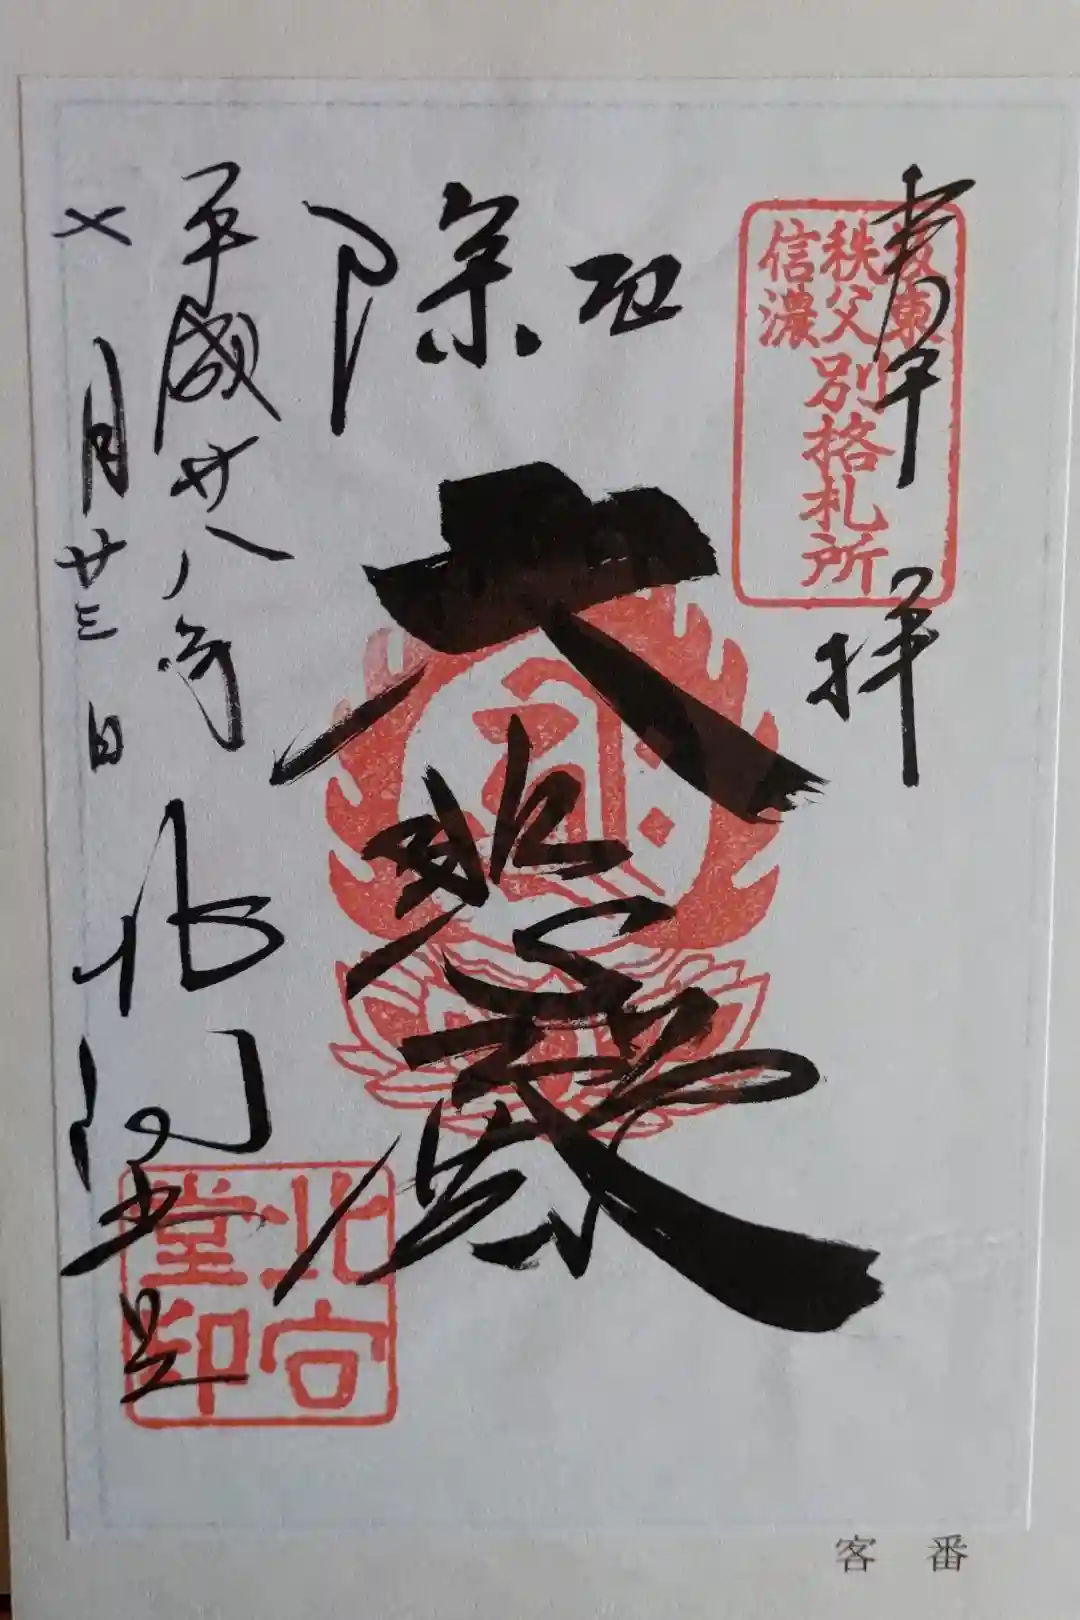 奉拝
坂東
秩父
信濃
別格札所
厄除
大悲殿
平成廿八年
七月廿三日
北向堂
北向
堂印
客 番